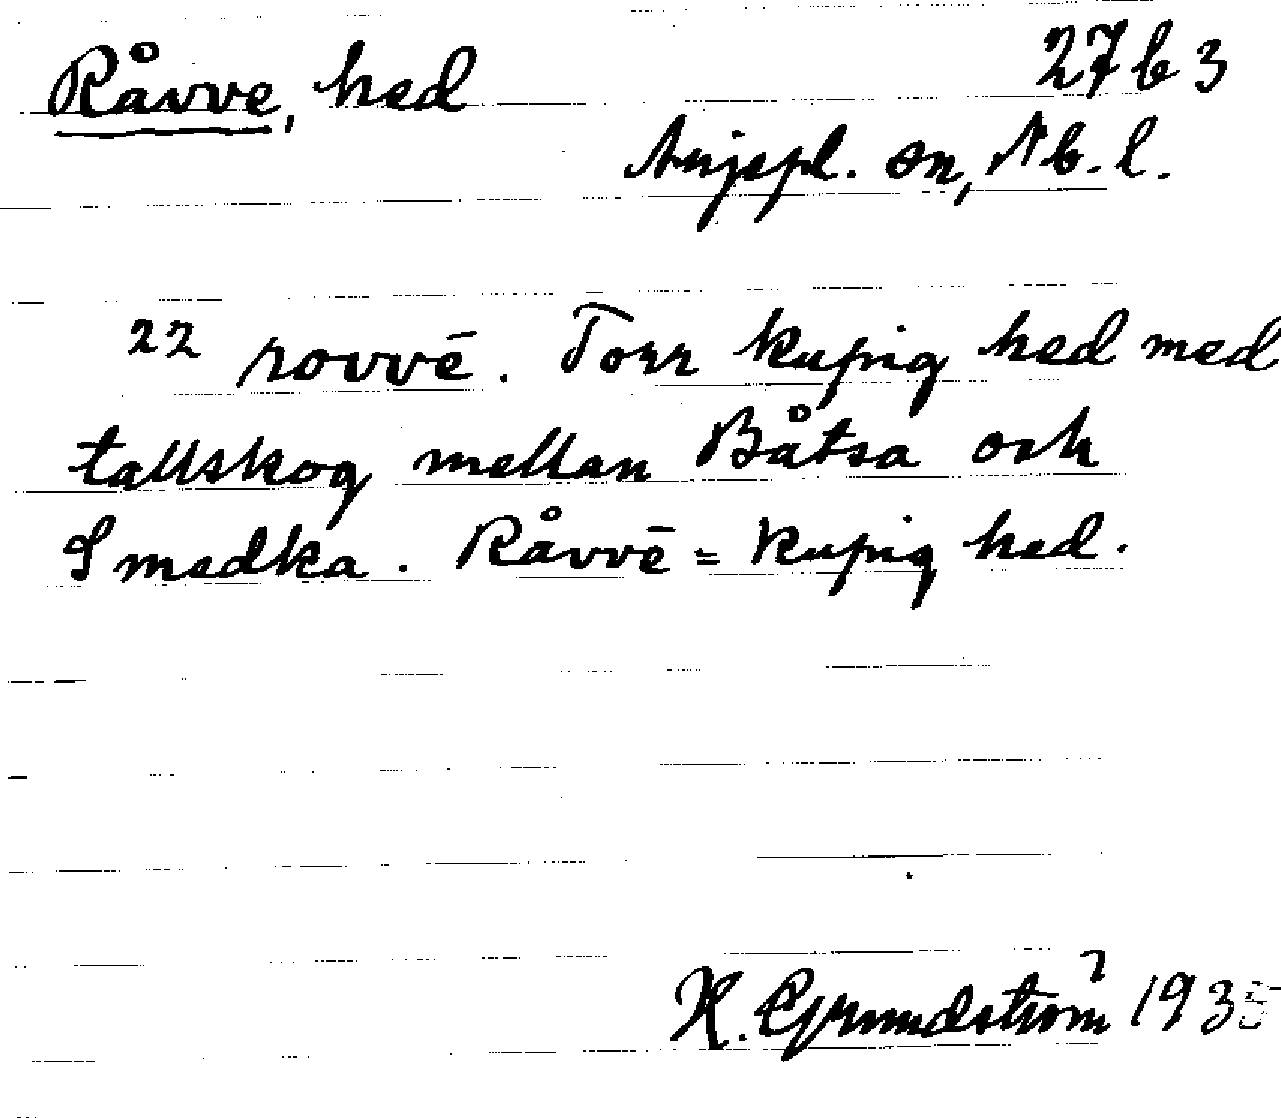 Råvve, hed 27 b 3
Arjepl. sn, Nb. l.
22 rovvē. Torr kupig hed med
tallskog mellan Båtsa och
Smedka. Råvvē = kupig hed.
H. Grundström 1935